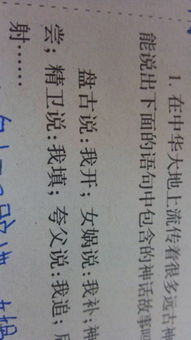 1. 在中华大地上流传着很多远古神
能说出下面的语句中包含的神话故事吗
盘古说:我开;女娲说:我补;神
尝;精卫说:我填;夸父说:我追;后
射……